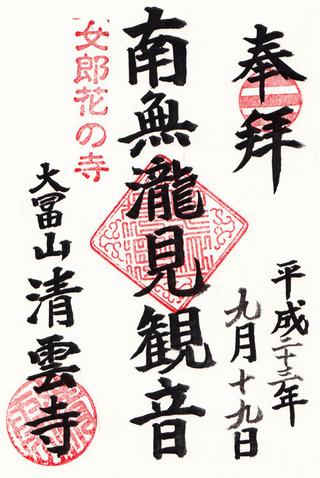 奉拝
平成二十三年
九月十九日
南無瀧見観音
女郎花の寺
大冨山
清雲寺